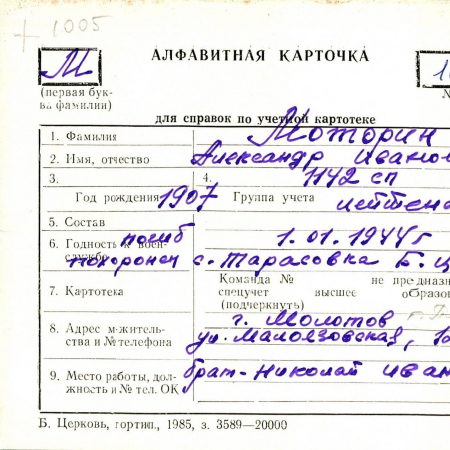 + 1005
АЛФАВИТНАЯ КАРТОЧКА
М
(первая бук-
ва фамилии)
для справок по учетной картотеке
1. Фамилия Моторин
2. Имя, отчество Александр Иванов
3. 4. 1142 сп
Год рождения 1907 Группа учета лейтена
5. Состав
6. Годность к воен- погиб 1.01.1944г
службе похоронен с. Тарасовка Б. Ц
7. Картотека Команда № не предназн
спецучет высшее образов
(подчеркнуть)
8. Адрес м-жительс- г. Молотов
тва и № телефона ул. Малоязовская,
9. Место работы, дол- брат-Николай Иван
жность и № тел. ОК
Б. Церковь, гортип., 1985, з. 3589—20000